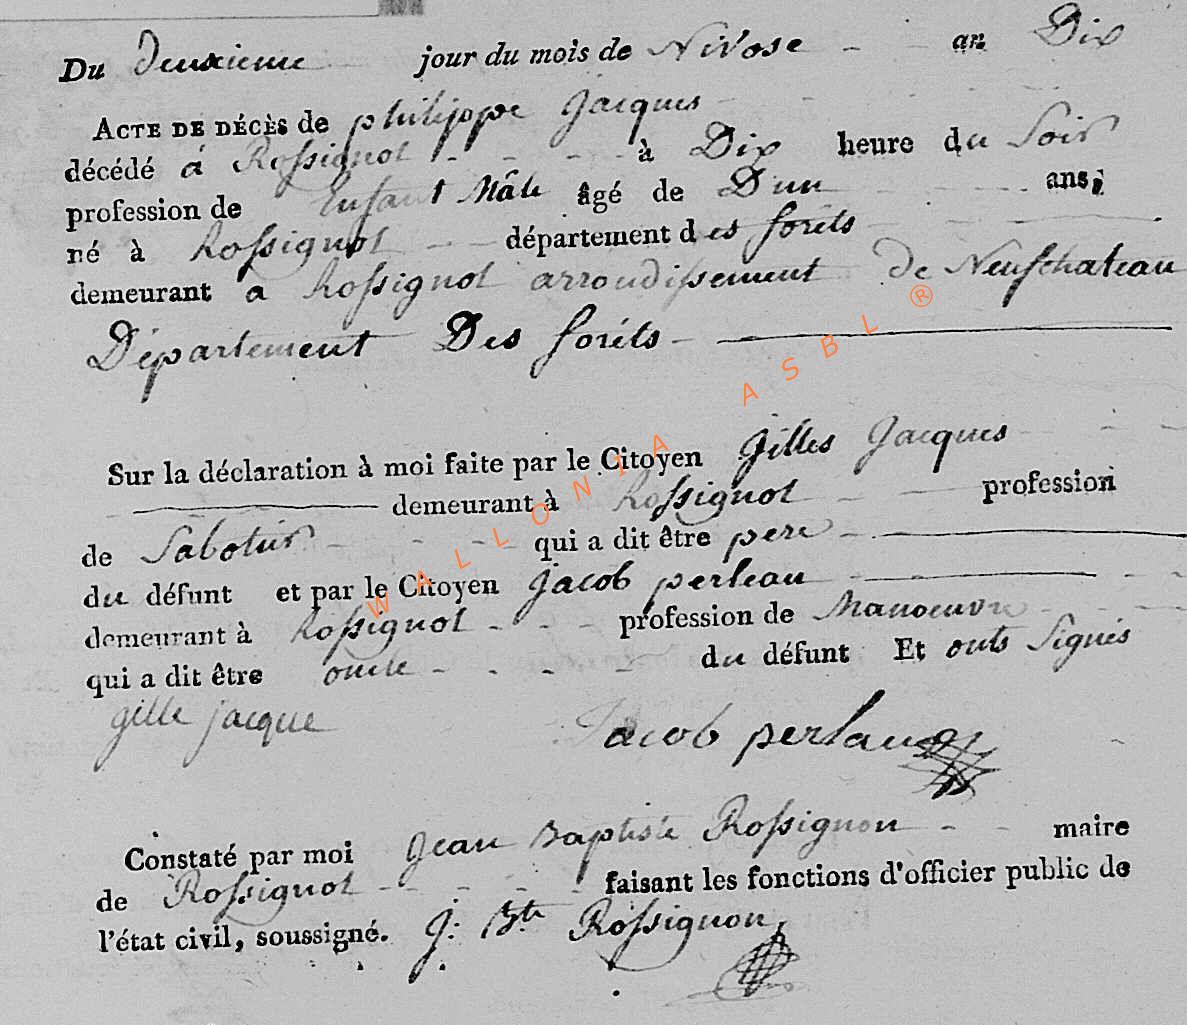 Du Deuxieme jour du mois de Nivose - an Dix
ACTE DE DÉCÈS de philippe Jacques - -
décédé à Rossignol - - - à Dix heure du Soir
profession de Enfant Mâle âgé de D'un - - ans,
né à Rossignol - - département des forêts - - -
demeurant a Rossignol arrondissement De Neufchateau
Département Des forêts -
Sur la déclaration à moi faite par le Citoyen Gilles Jacques - - -
demeurant à Rossignol - - profession
de Sabotier - - - - qui a dit être pere -
du défunt et par le Citoyen Jacob perleau - -
demeurant à Rossignol - - - profession de Manoeuvre - - -
qui a dit être oncle - - - - du défunt Et onts Signés
gille jacque Jacob perlau
Constaté par moi Jean Baptiste Rossignon - - maire
de Rossignol - - - - - faisant les fonctions d'officier public de
l'état civil, soussigné. J: Bte Rossignon
WALLONIA ASBL ®